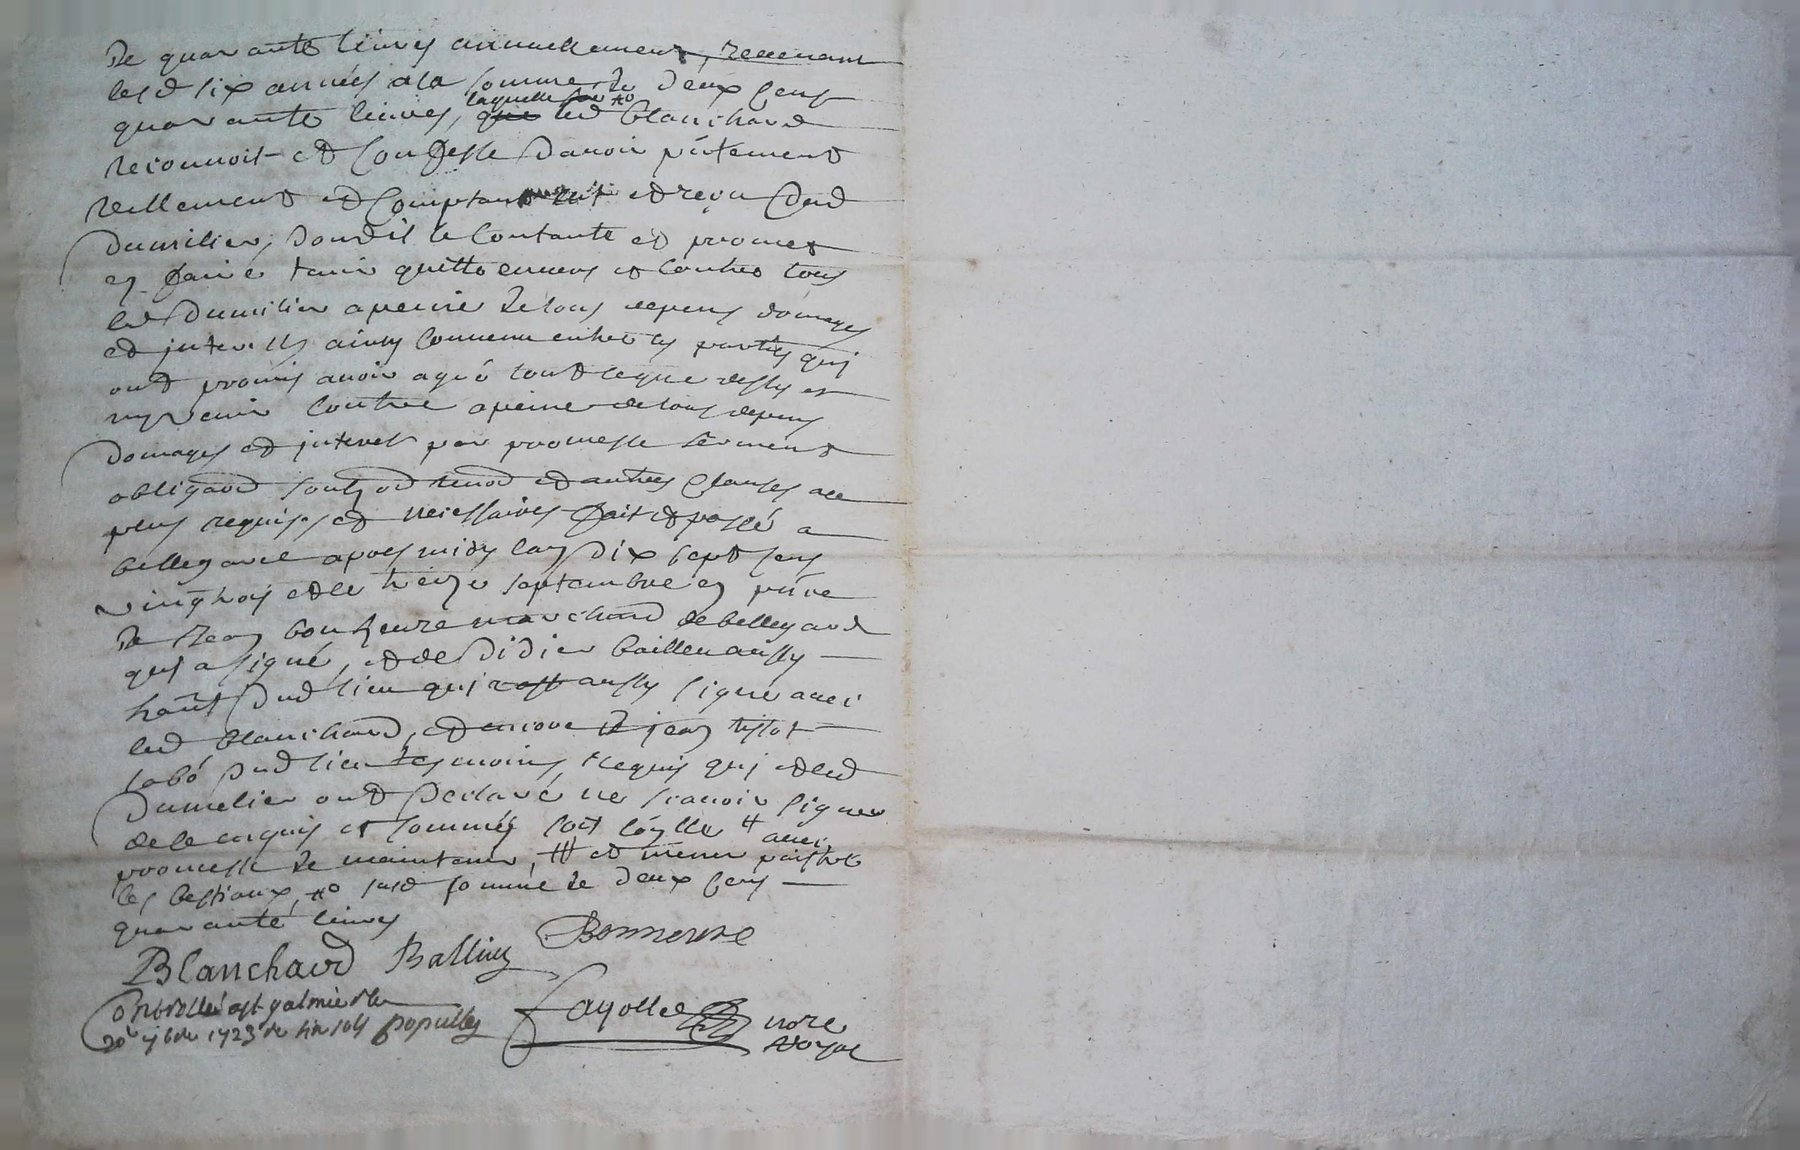 de quarante livres annuellement, revenant
lesd six années a la somme de deux cens
quarante livres, que laquelle som ## led blanchard
reconnoit et confesse davoir pñtement
reellement et comptant et reçu dud
dumilier, dont il le contante et promet
en faire tenir quitte envers et contre tous
led dumilier a peine de tous depens domages
et interests ainsy convenu entre les parties qui
ont promis avoir agreé tout ce que dessus et
ny venir contre a peine de tous depens
domages et interest par promesse serment
obligaõn soub, et autres clauses au
plus requises et necessaires fait et passé a
bellegarde apres midy lan dix sept sens
vingtrois et le treize septembre en pñce
de Jean bonheure marchand de bellegarde
qui a signé, et de Didier baillieu aussy
hañt dud lieu qui aussy signé avec
led blanchard, et encore de jean tissot
labõ dud lieu tesmoins requis qui et led
Dumelier ont declaré ne scavoir signer
de ce enquis et sommés soit # avec
promesse de maintenir, ## et mener paistre
les bestiaux, ## susd somme de deux cens
quarante livres
Blanchard Ballieu Bonneure
Controllé a st galmier le
20e 7bre 1723 Rr six sols popullez
Fayolle nore
Royal